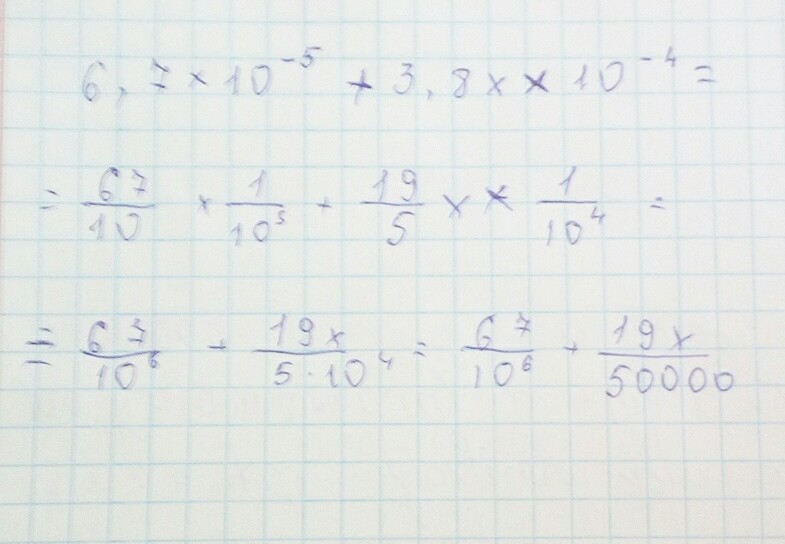 6,7 × 10⁻⁵ + 3,8x × 10⁻⁴ =
= 67/10 × 1/10⁵ + 19/5 x × 1/10⁴ =
= 67/10⁶ + 19x/5·10⁴ = 67/10⁶ + 19x/50000